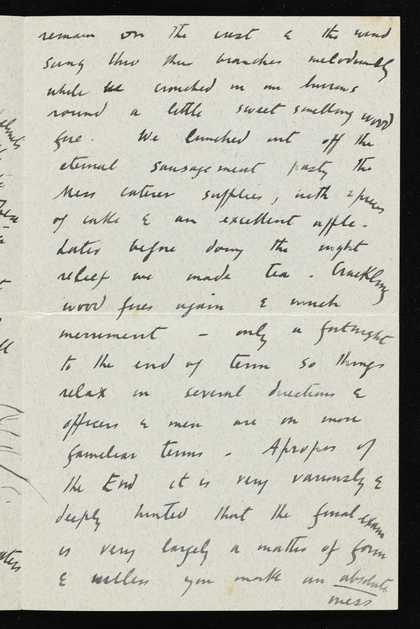 remain on the crest & the wind
sang thro their branches melodiously
while we crouched in our burrows
round a little sweet smelling wood
fire. We lunched out off the
eternal sausagemeat pasty the
Mess caterer supplies, with 2 pieces
of cake & an excellent apple.
Later before doing the night
relief we made tea. Crackling
wood fires again & much
merriment - only a fortnight
to the end of term so things
relax in several directions &
officers & men are on more
familiar terms. Apropos of
the End it is very variously &
deeply hinted that the final exam
is very largely a matter of form
& unless you make an absolute
mess